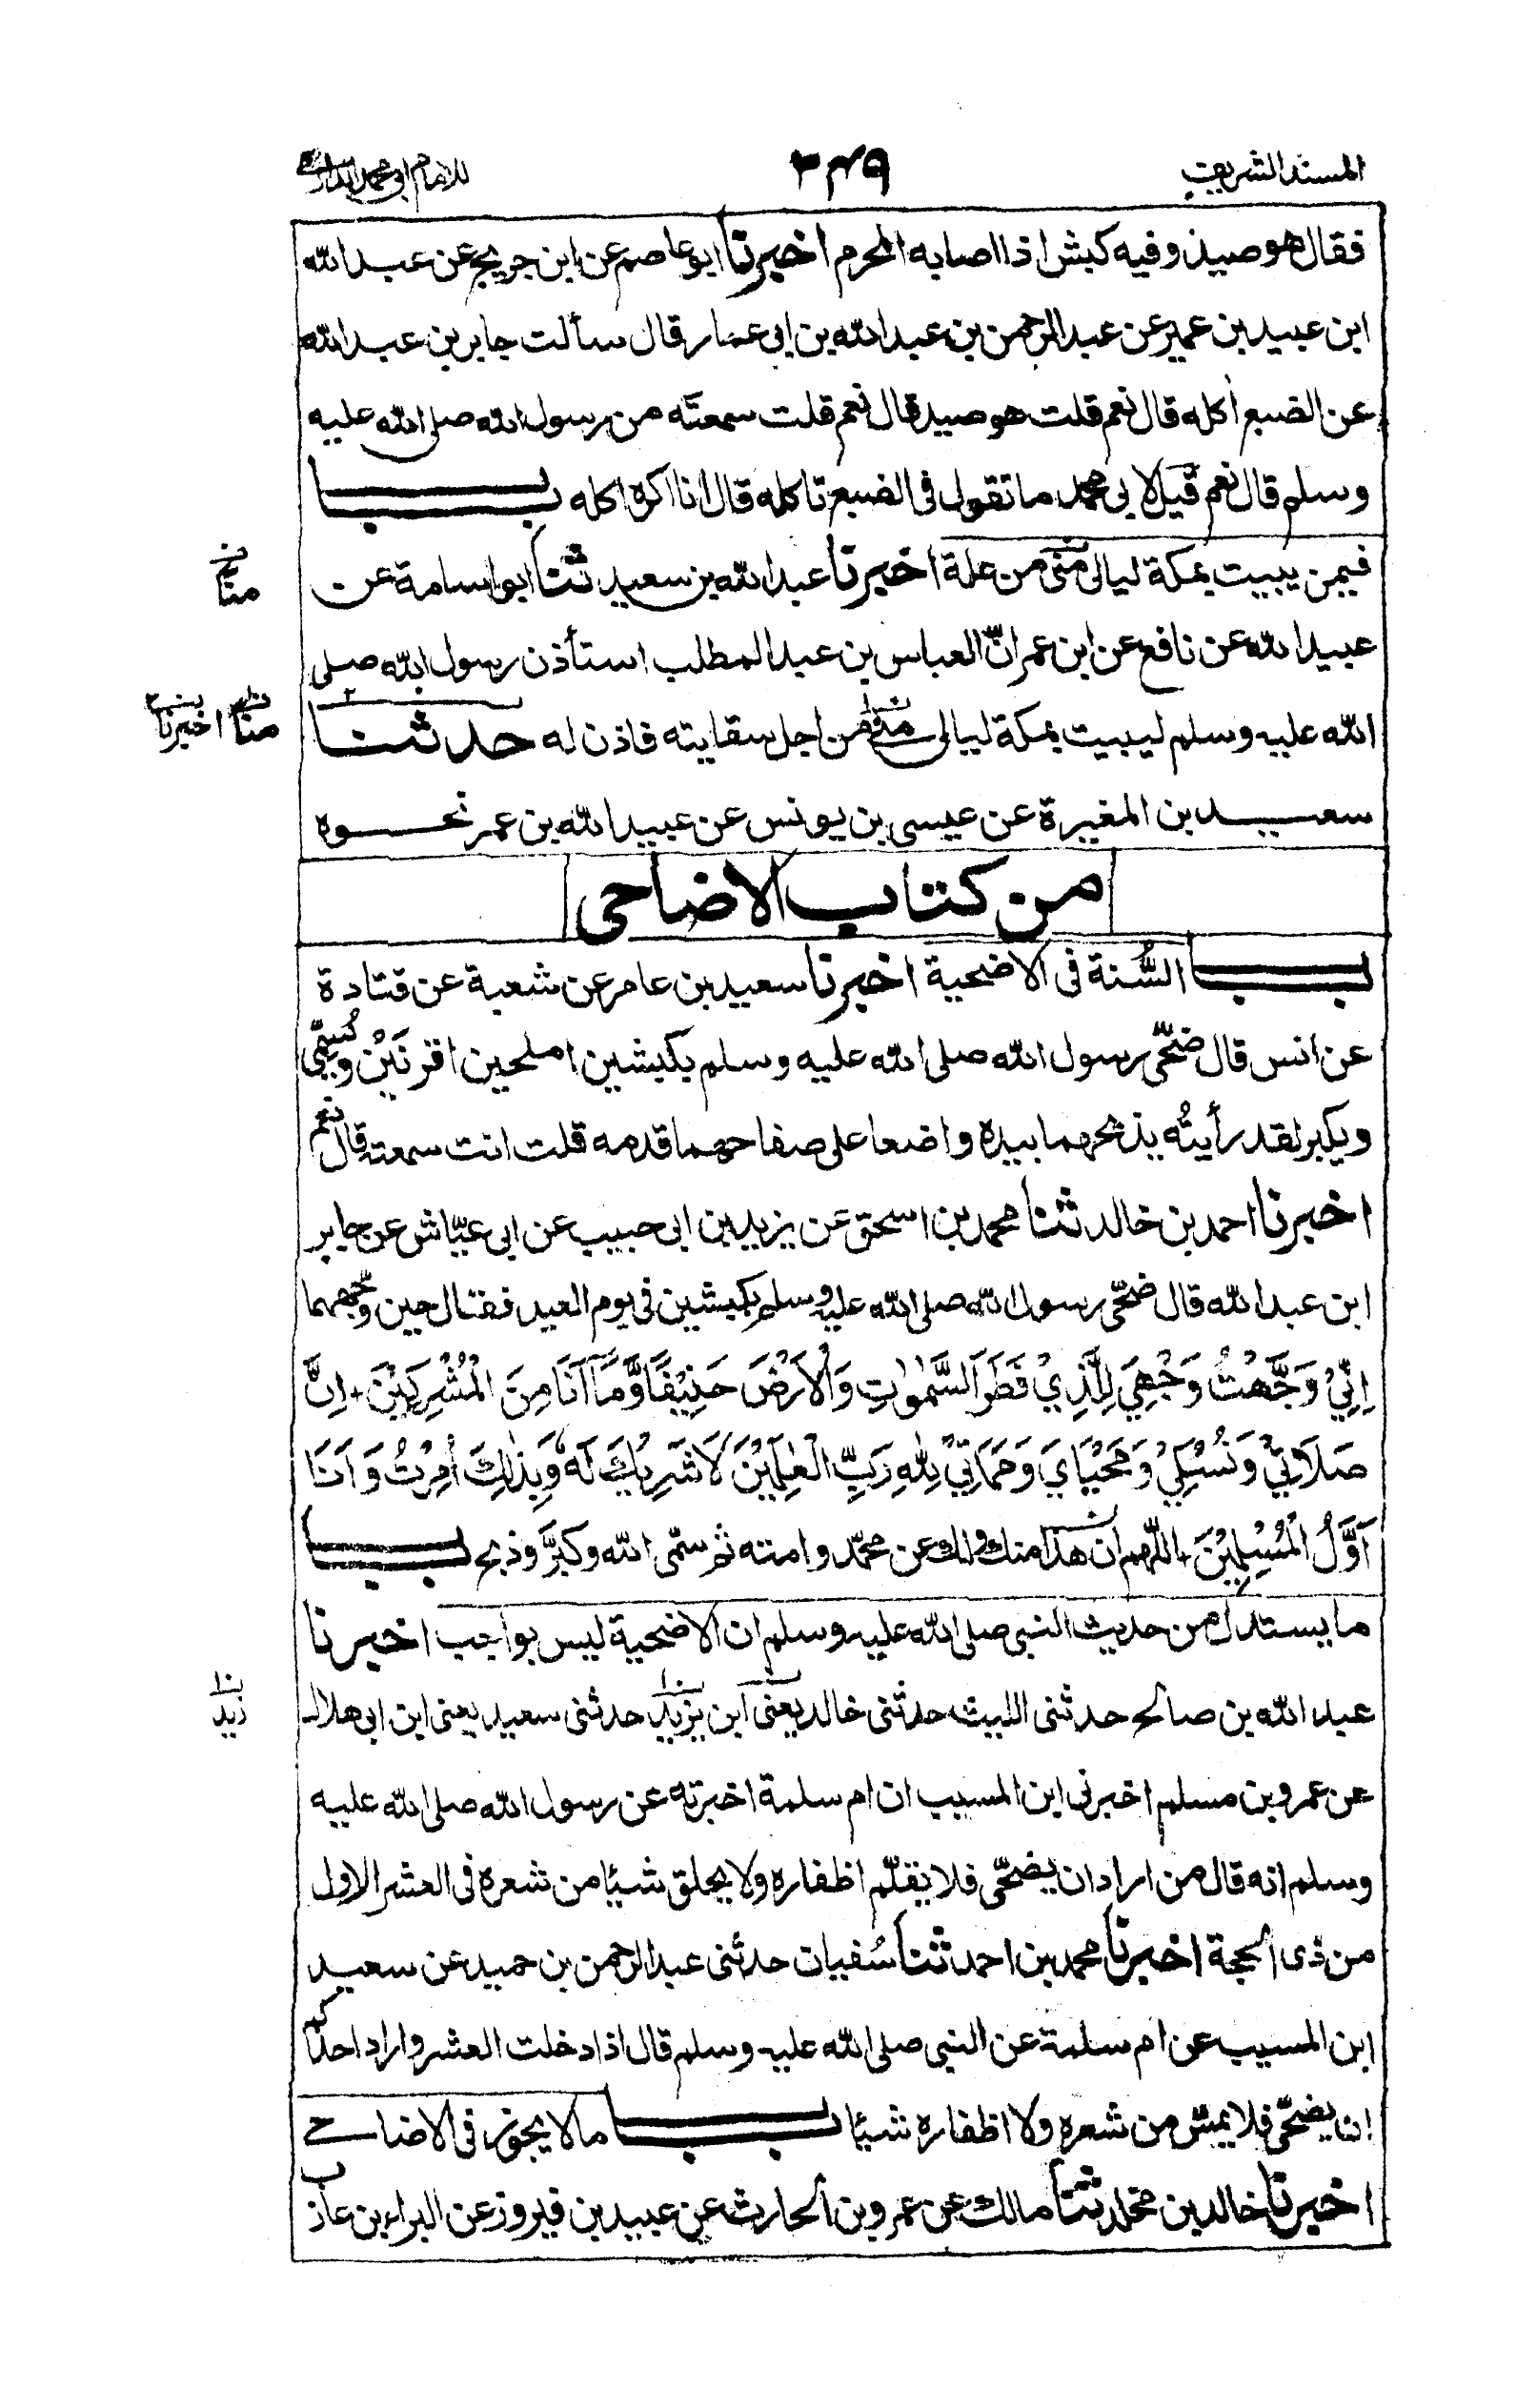 المسند الشريف
٢٤٩
للامام ابى محمد الدارمى
فقال هو صيد وفيه كبش اذا اصابه المحرم اخبرنا ابو عاصم عن ابن جريج عن عبد الله
ابن عبيد بن عمير عن عبد الرحمن بن عبد الله بن ابى عمار قال سألت جابر بن عبد الله
عن الضبع اكله قال نعم قلت هو صيد قال نعم قلت سمعته من رسول الله صلى الله عليه
وسلم قال نعم قيل لابى محمد ما تقول فى الضبع تاكله قال انا اكره اكله باب
فيمن يبيت بمكة ليالى منى من علة اخبرنا عبد الله بن سعيد ثنا ابو اسامة عن
منا
عبيد الله عن نافع عن ابن عمر انّ العباس بن عبد المطلب استأذن رسول الله صلى
الله عليه وسلم ليبيت بمكة ليالى منى من اجل سقايته فاذن له حدثنا
منا اخبرنا
سعيد بن المغيرة عن عيسى بن يونس عن عبيد الله بن عمر نحوه
من كتاب الاضاحى
باب السُّنة فى الاضحية اخبرنا سعيد بن عامر عن شعبة عن قتادة
عن انس قال ضحّى رسول الله صلى الله عليه وسلم بكبشين املحين اقرنَيْن ويُسمّى
ويكبر لقد رأيتُه يذبحهما بيده واضعا على صفاحهما قدمه قلت انت سمعته قال نعم
اخبرنا احمد بن خالد ثنا محمد بن اسحق عن يزيد بن ابى حبيب عن ابى عيّاش عن جابر
ابن عبد الله قال ضحّى رسول الله صلى الله عليه وسلم بكبشين فى يوم العيد فقال حين وجّههما
اِنِّيْ وَجَّهْتُ وَجْهِيَ لِلَّذِيْ فَطَرَ السَّمٰوٰتِ وَالْاَرْضَ حَنِيْفًا وَّمَآ اَنَا مِنَ الْمُشْرِكِيْنَ اِنَّ
صَلَاتِيْ وَنُسُكِيْ وَمَحْيَايَ وَمَمَاتِيْ لِلّٰهِ رَبِّ الْعٰلَمِيْنَ لَا شَرِيْكَ لَهٗ وَبِذٰلِكَ اُمِرْتُ وَاَنَا
اَوَّلُ الْمُسْلِمِيْنَ اللّهم ان هذا منك ولك عن محمّد وامته ثم سمّى الله وكبَّر وذبح باب
ما يستدل من حديث النبى صلى الله عليه وسلم ان الاضحية ليس بواجب اخبرنا
عبد الله بن صالح حدثنى الليث حدثنى خالد يعنى ابن يزيد حدثنى سعيد يعنى ابن ابى هلال
زيد
عن عمرو بن مسلم اخبرنى ابن المسيب ان ام سلمة اخبرته عن رسول الله صلى الله عليه
وسلم انه قال من اراد ان يضحّى فلا يقلّم اظفاره ولا يحلق شيئا من شعره فى العشر الاول
من ذى الحجة اخبرنا محمد بن احمد ثنا سُفيان حدثنى عبد الرحمن بن حميد عن سعيد
ابن المسيب عن ام سلمة عن النبى صلى الله عليه وسلم قال اذا دخلت العشر واراد احدكم
ان يضحّى فلا يمسّ من شعره ولا اظفاره شيئا باب ما لا يجوز فى الاضاحى
اخبرنا خالد بن مخلد ثنا مالك عن عمرو بن الحارث عن عبيد بن فيروز عن البراء بن عازب